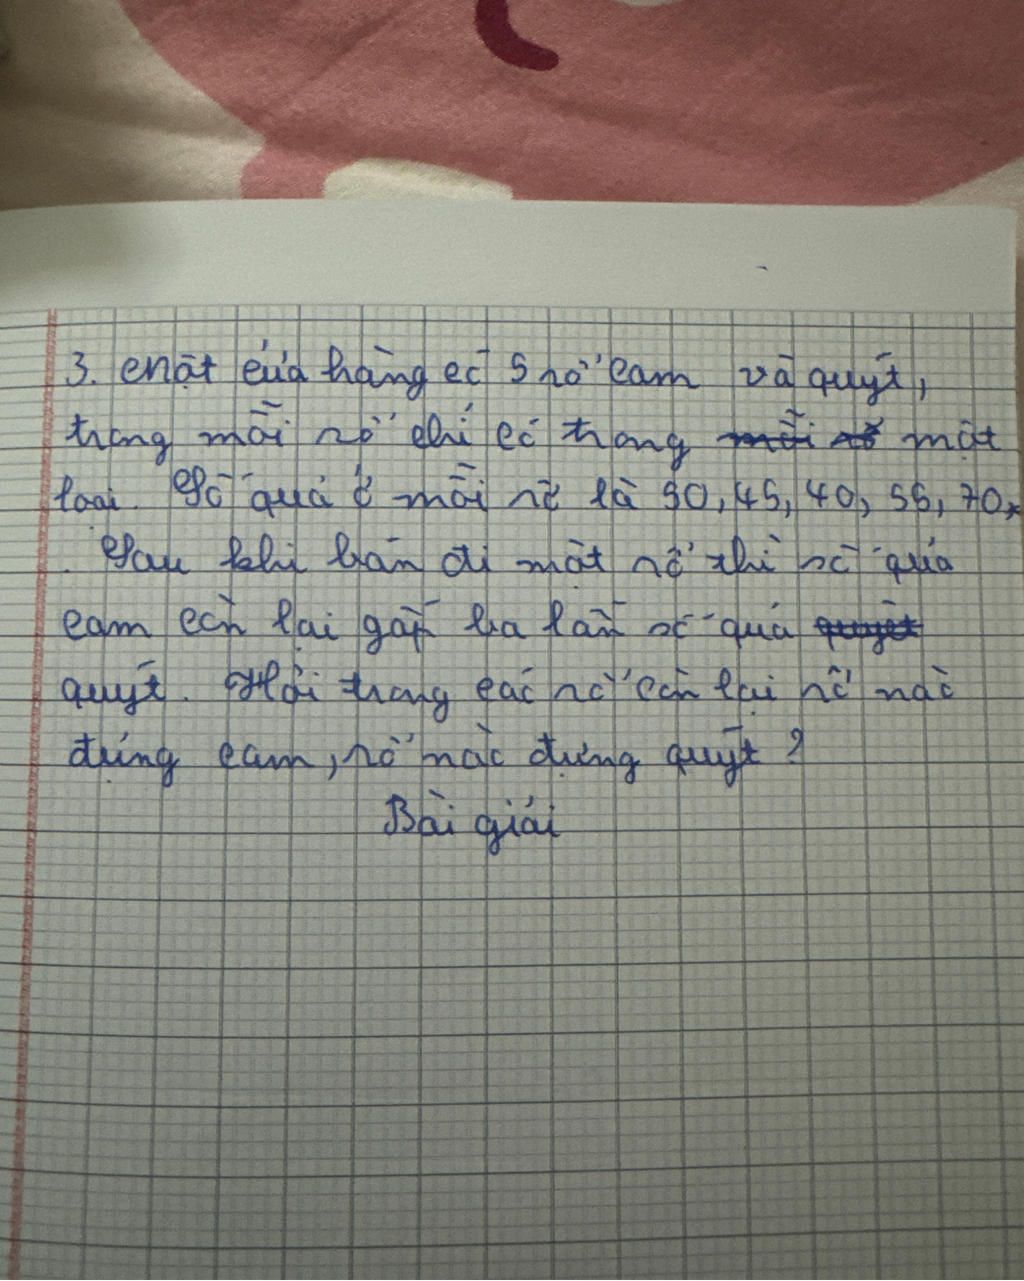 3. Một cửa hàng có 5 rổ cam và quýt,
trong mỗi rổ chỉ có trong mỗi rổ một
loại. Số quả ở mỗi rổ là 50, 45, 40, 55, 70,
. Sau khi bán đi một rổ thì số quả
cam còn lại gấp ba lần số quả quyệt
quýt. Hỏi trong các rổ còn lại rổ nào
đựng cam, rổ nào đựng quýt ?
Bài giải